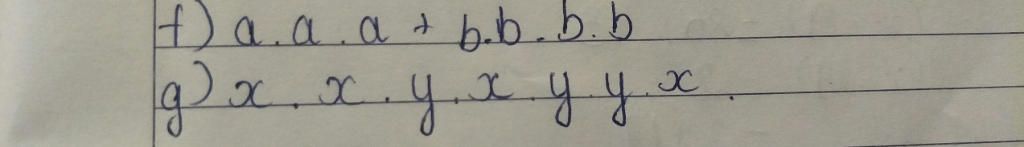 f) a.a.a + b.b.b.b
g) x.x.y.x.y.y.x.